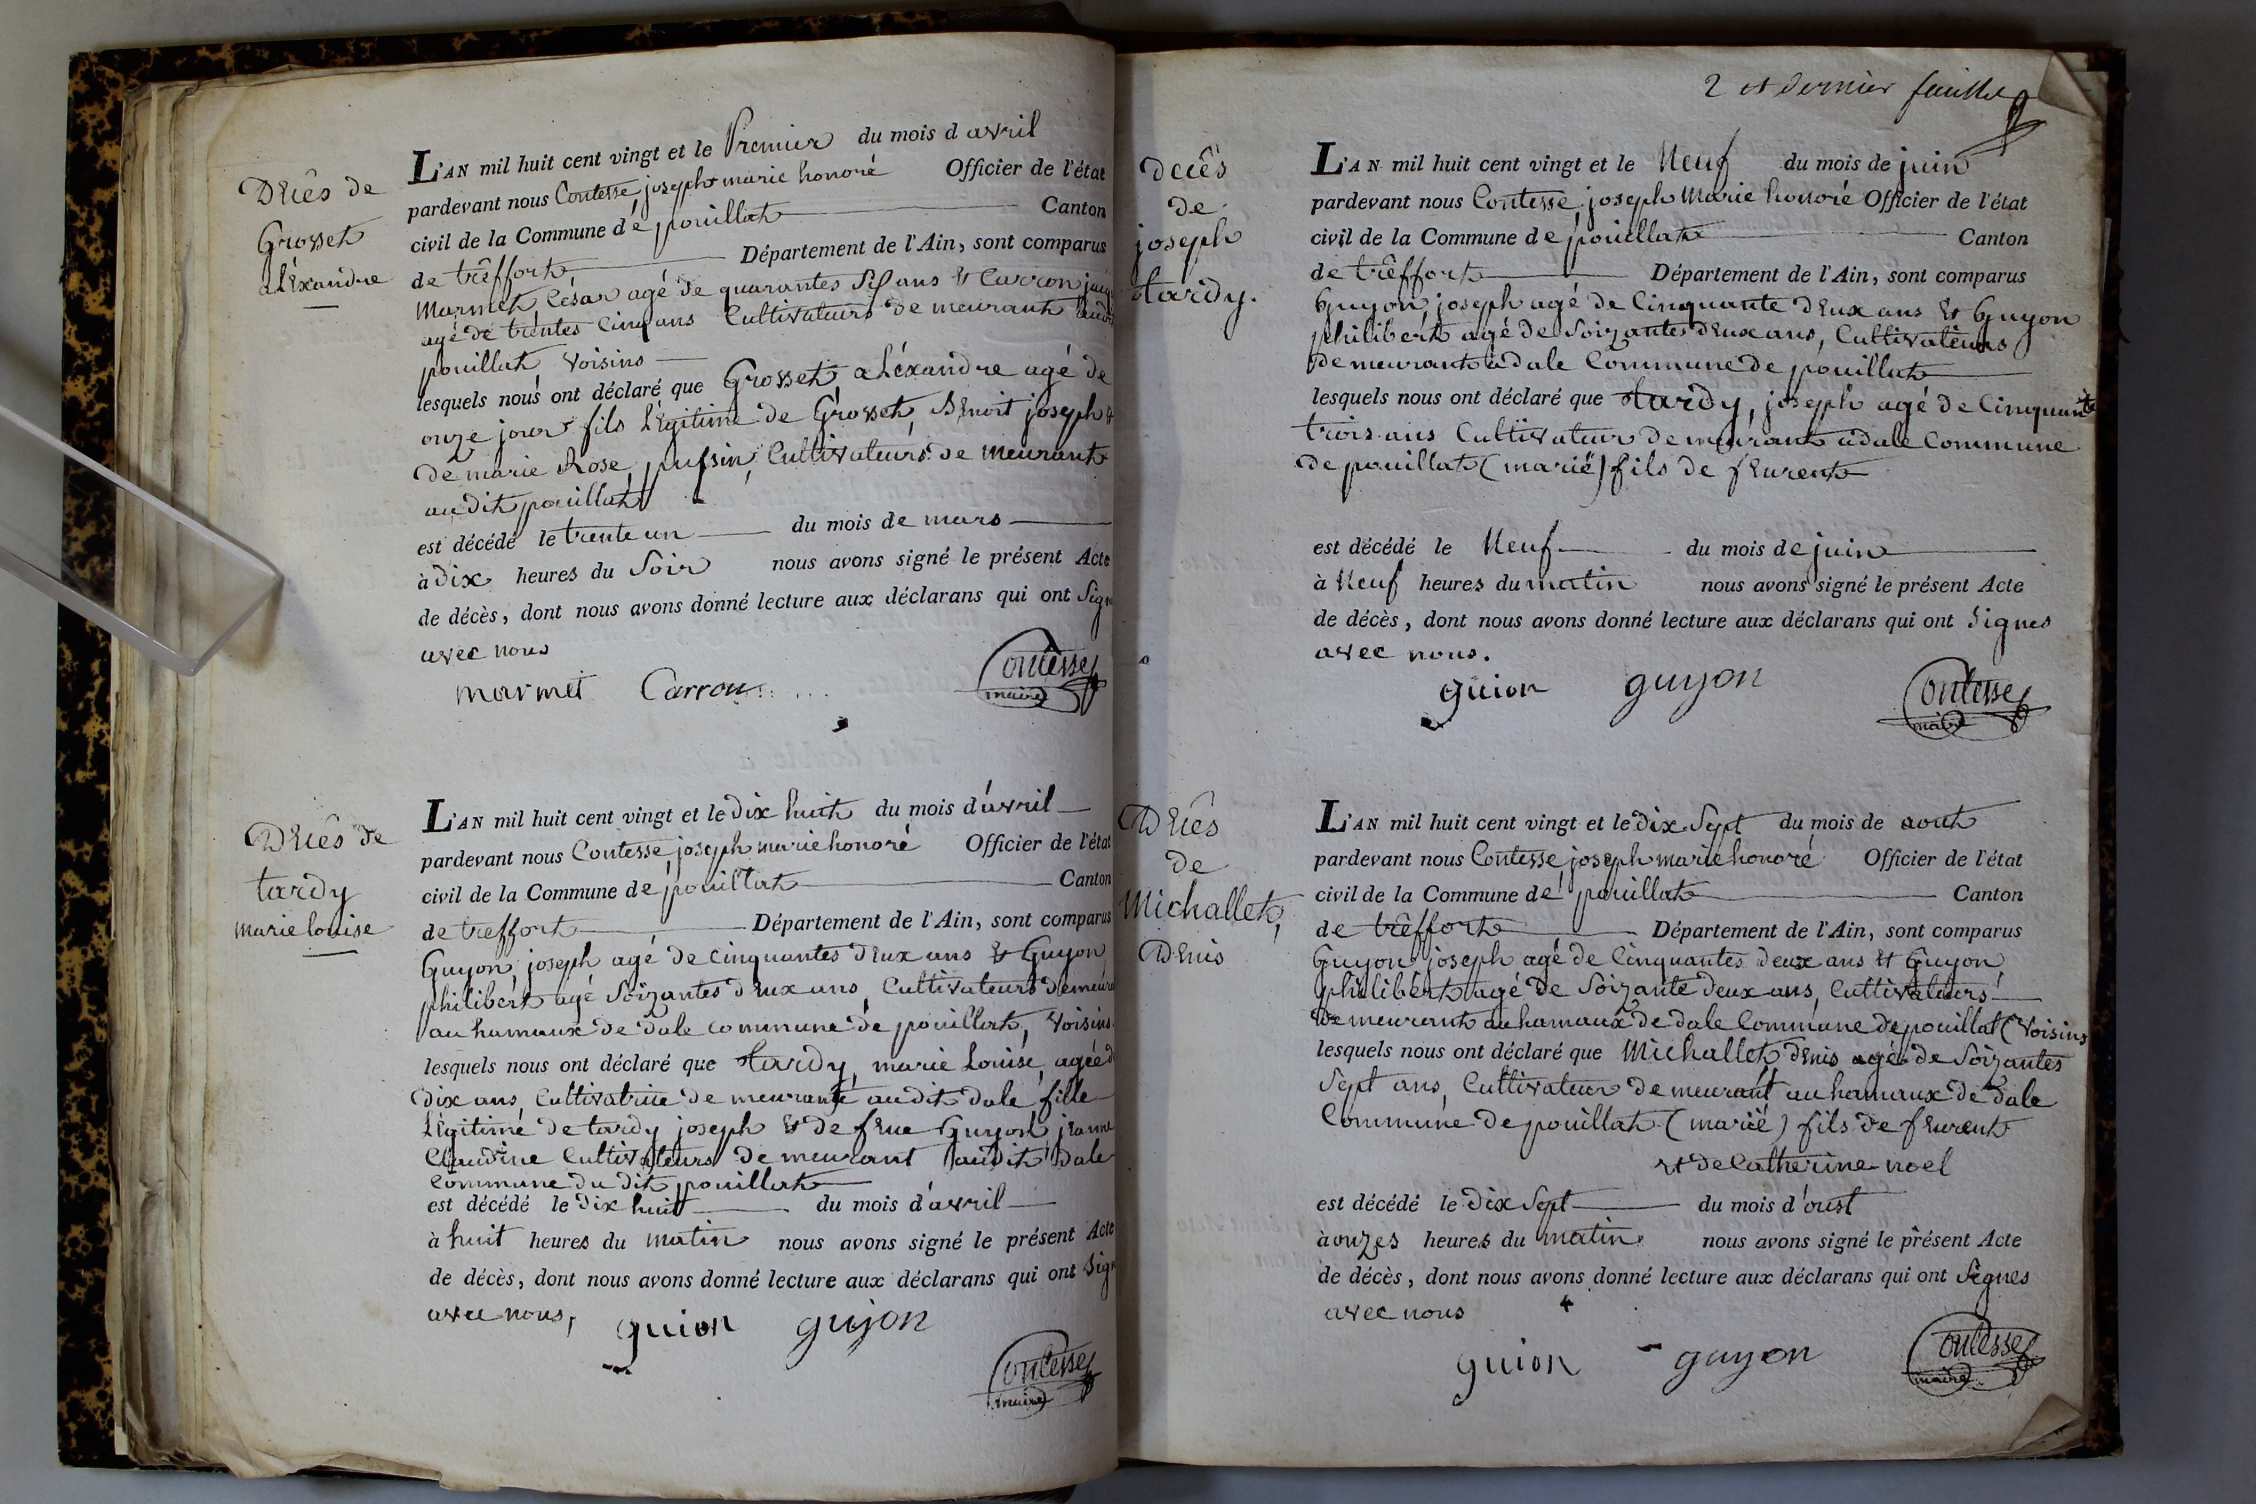 Décês de
Grosset
aléxandre
L'AN mil huit cent vingt et le Premier du mois d avril
pardevant nous Contesse joseph marie honoré Officier de l'état
civil de la Commune de pouillat Canton
de trêffort Département de l'Ain, sont comparus
Marmet César agé de quarantes six ans et Carron
agé de trentes Cinq ans Cultivateurs de meurant
pouillat voisins
lesquels nous ont déclaré que Grosset, aléxandre agé de
onze jour fils légitime de Grosset, Benoit joseph &
de marie Rose, Cultivateurs de meurant
au dit pouillat
est décédé le trente un du mois de mars
à dix heures du Soir nous avons signé le présent Acte
de décès, dont nous avons donné lecture aux déclarans qui ont
avec nous
marmet Carron Contesse
maire
Décês de
tardy
marie louise
L'AN mil huit cent vingt et le dix huit du mois d'avril
pardevant nous Contesse, joseph marie honoré Officier de l'état
civil de la Commune de pouillat Canton
de treffort Département de l'Ain, sont comparus
Guyon joseph agé de cinquantes deux ans et Guyon
philibert agé Soizantes deux ans, Cultivateurs
au hamaux de dale commune de pouillat, voisins
lesquels nous ont déclaré que tardy, marie Louise, agée
dix ans, Cultivatrice de meurante au dit dale fille
légitime de tardy joseph et de feue Guyon, jeanne
Claudine Cultivateurs de meurant audit dale
Commune du dit pouillat
est décédé le dix huit du mois d'avril
à huit heures du matin nous avons signé le présent Acte
de décès, dont nous avons donné lecture aux déclarans qui ont
avec nous,
guion guyon
Contesse
maire
2 et dernier feuillet
Décês
de
joseph
tardy.
L'AN mil huit cent vingt et le Neuf du mois de juin
pardevant nous Contesse, joseph Marie honoré Officier de l'état
civil de la Commune de pouillat Canton
de trêffort Département de l'Ain, sont comparus
Guyon, joseph agé de Cinquante deux ans et Guyon
philibert agé de Soizantes deux ans, Cultivateurs
demeurant à dale Commune de pouillat
lesquels nous ont déclaré que tardy, joseph agé de Cinquante
trois ans Cultivateur demeurant à dale Commune
de pouillat (marié) fils de feurent
est décédé le Neuf du mois de juin
à Neuf heures du matin nous avons signé le présent Acte
de décès, dont nous avons donné lecture aux déclarans qui ont Signes
avec nous.
guion guyon Contesse
maire
Décês
de
Michallet,
Denis
L'AN mil huit cent vingt et le dix Sept du mois de aout
pardevant nous Contesse, joseph marie honoré Officier de l'état
civil de la Commune de pouillat Canton
de trêffort Département de l'Ain, sont comparus
Guyon joseph agé de Cinquantes deux ans et Guyon,
philibert agé de Soizante deux ans, Cultivateurs
demeurant au hamaux de dale Commune de pouillat (Voisins
lesquels nous ont déclaré que Michallet, denis agé de Soizantes
Sept ans, Cultivateur demeurant au hamaux de dale
Commune de pouillat (marié) fils de feurent
et de Catherine noel
est décédé le dix Sept du mois d'oust
à onzes heures du matin nous avons signé le présent Acte
de décès, dont nous avons donné lecture aux déclarans qui ont Signes
avec nous
guion guyon Contesse
maire